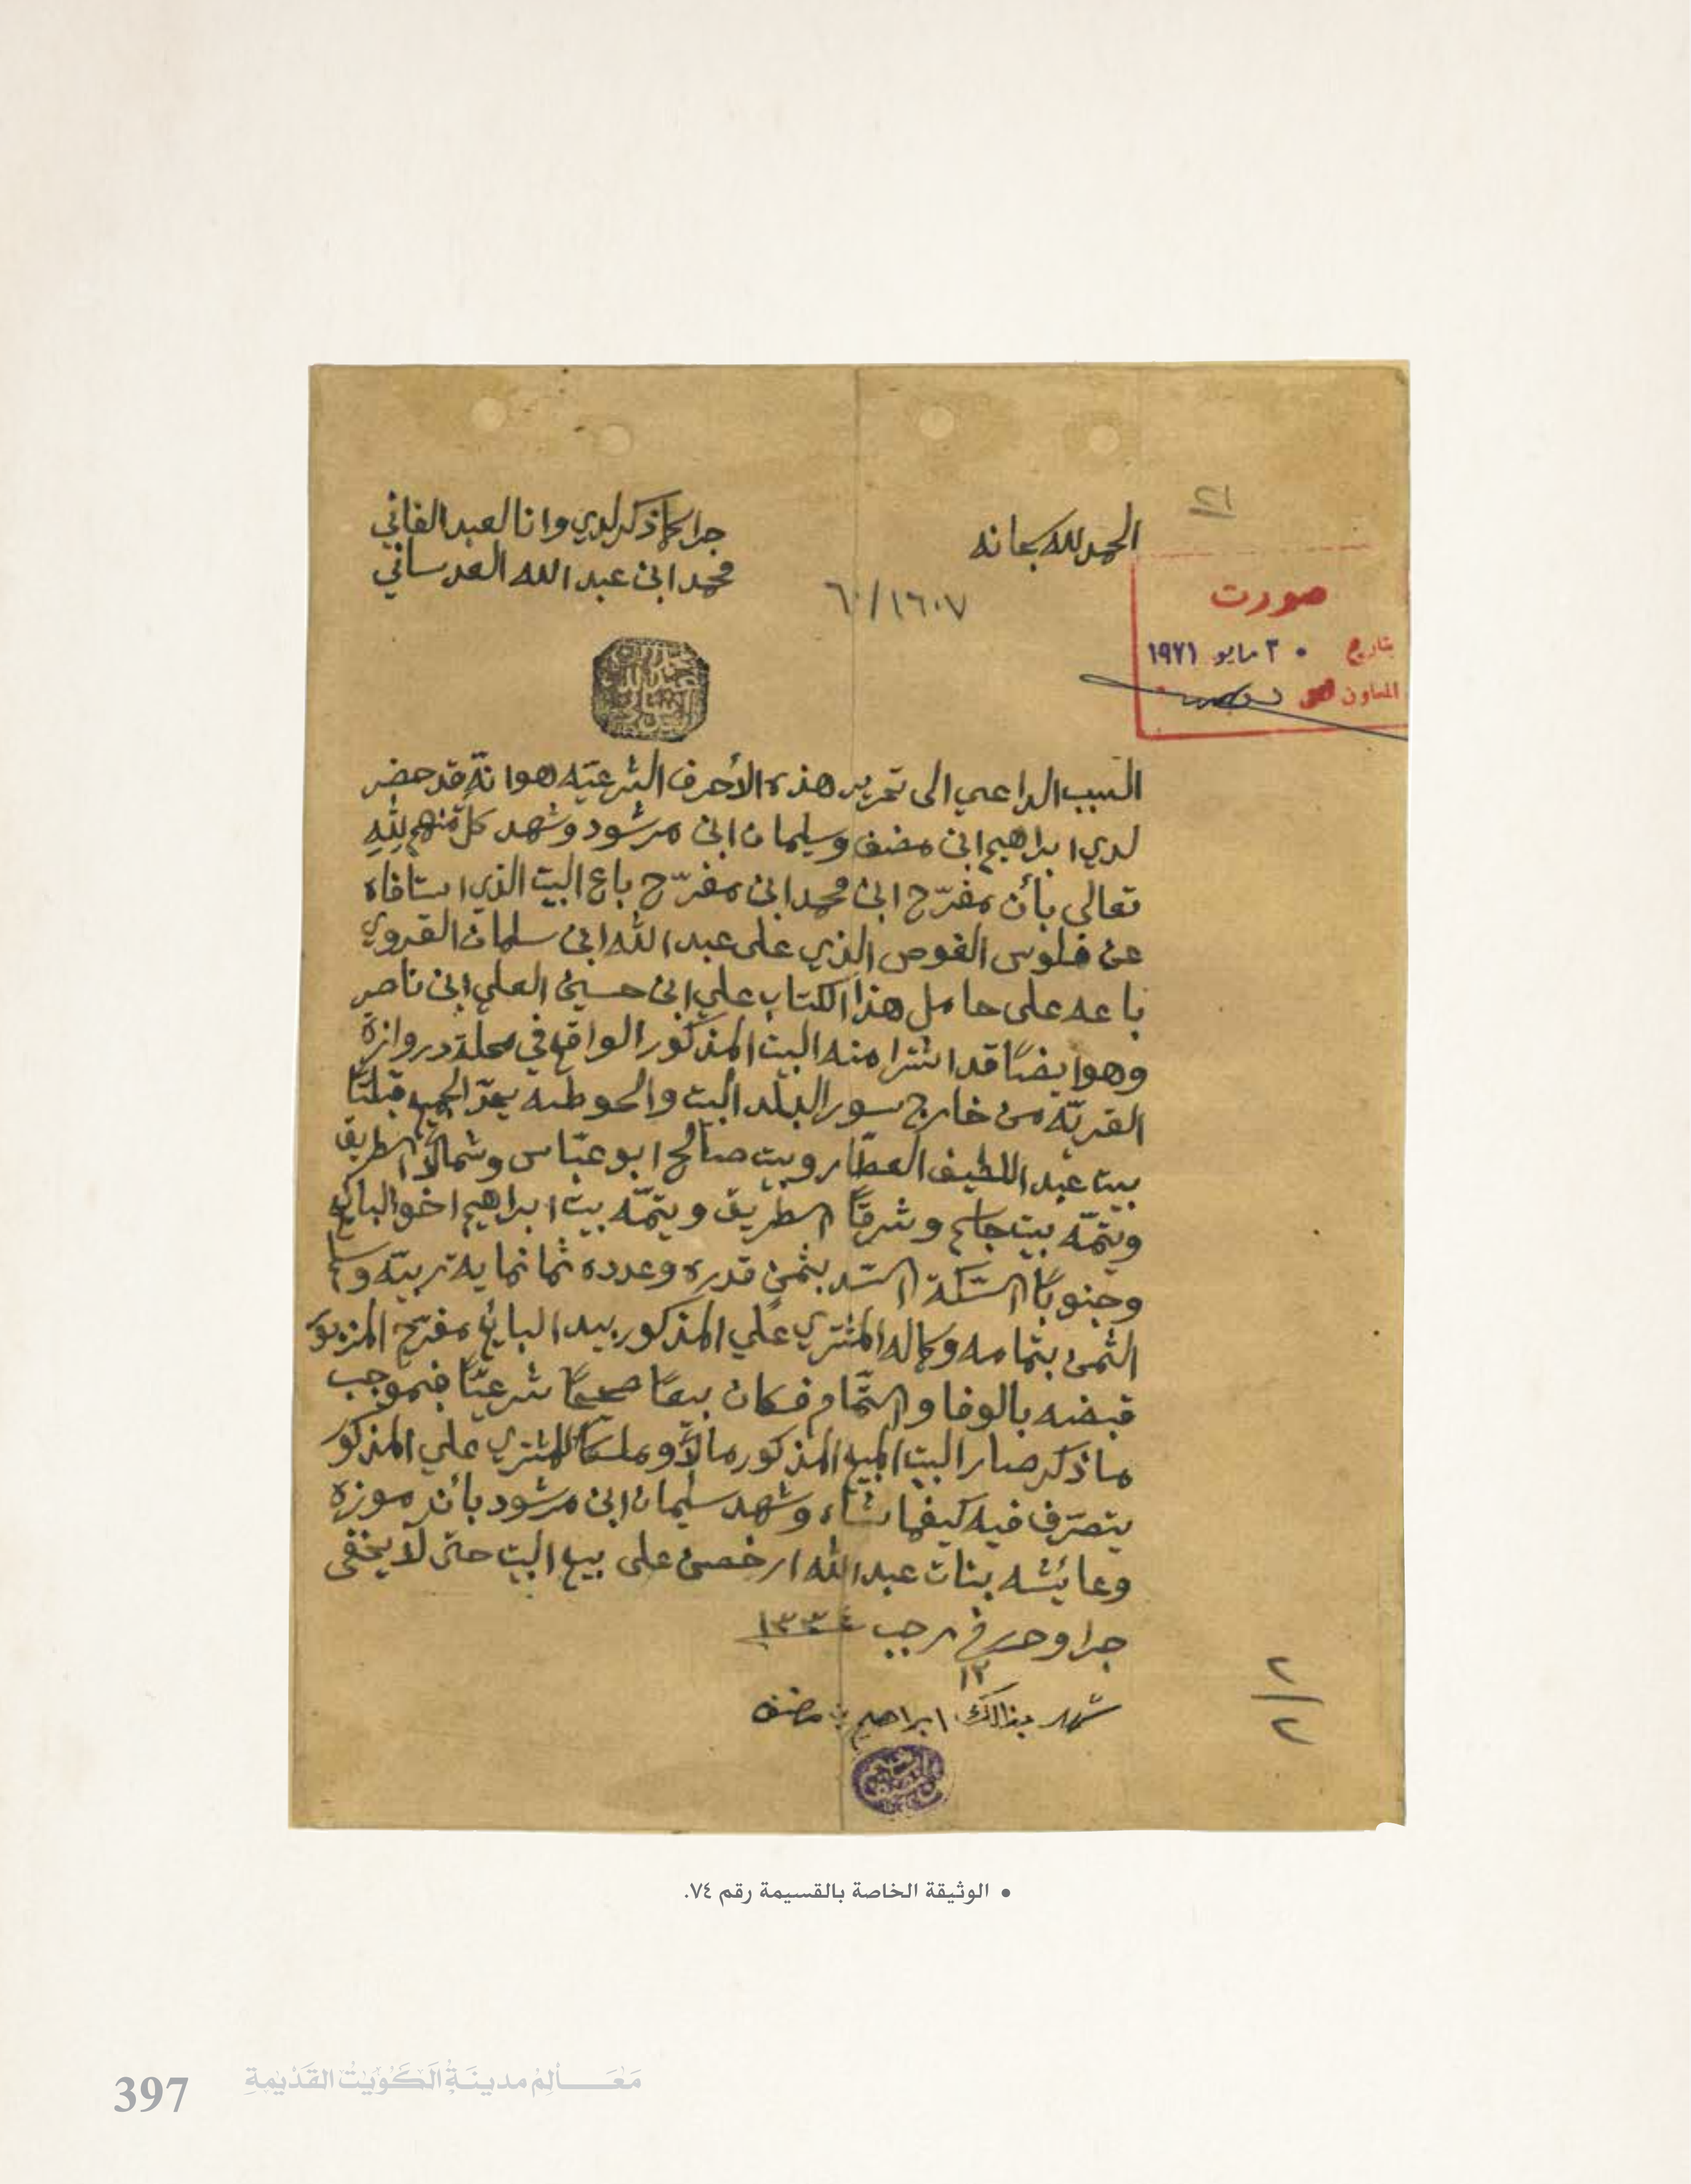 الحمد لله سبحانه
جرا كما ذكر لدي وانا العبد الفاني
محمد ابن عبد الله العدساني
٢١
٦٠/١٦٠٧
صورت
بتاريخ ٣٠ مايو ١٩٧١
المعاون
السبب الداعي الى تحرير هذه الأحرف الشرعيّه هو انّه قد حضر
لدي ابراهيم ابن مضف وسليمان ابن مرشود وشهد كل منهم لله
تعالى بأن مفرّح ابن محمد ابن مفرّح باع البيت الذي استافاه
عن فلوس الغوص الذي على عبد الله ابن سلمان القروي
باعه على حامل هذا الكتاب علي ابن حسين العلي ابن ناصر
وهو ايضًا قد اشترا منه البيت المذكور الواقع في محلة دروازة
القريّه من خارج سور البلد البيت والحوطه يحدّ الجميع قبلتًا
بيت عبد اللطيف العطّار وبيت صالح ابو عبّاس وشمالًا الطريق
ويتمّه بيت جاسم وشرقًا الطريق ويتمّه بيت ابراهيم اخو البايع
وجنوبًا السّكّة السّد بثمن قدره وعدده ثمانمايه ربيّه وسلم
الثمن بتمامه وكماله المشتري علي المذكور بيد البايع مفرّح المزبور
قبضه بالوفا والتّمام فكان بيعًا صحيحًا شرعيًّا فبموجب
ما ذكر صار البيت المبيع المذكور مالًا وملكًا للمشتري علي المذكور
يتصرّف فيه كيفما شاء وشهد سليمان ابن مرشود بأن موزه
وعايشه بنات عبد الله ارخصن على بيع البيت حتى لا يخفى
جرا وحرر في رجب ١٣٣٤
١٣
شهد بذالك ابراهيم بن مضف
٢/٢
• الوثيقة الخاصة بالقسيمة رقم ٧٤.
مَعَالِمُ مدينَةِ الكُوَيْتِ القَدِيمَةِ
397